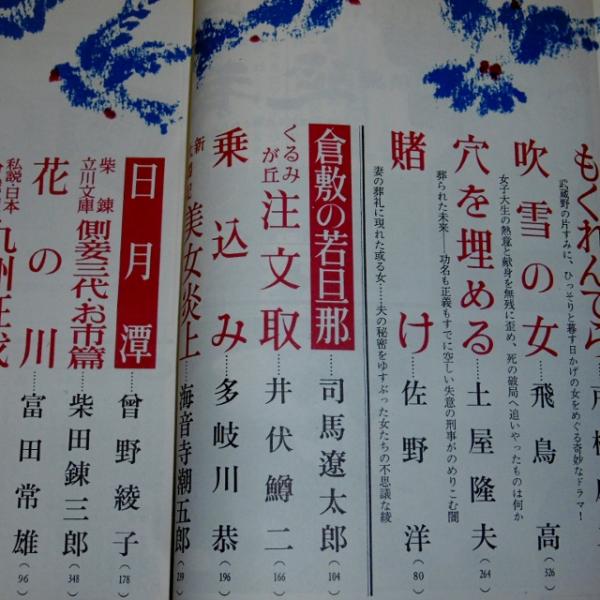 もくれんでら
武蔵野の片すみに、ひっそりと暮す日かげの女をめぐる奇妙なドラマ!
吹雪の女……飛鳥高(326)
女子大生の熱意と献身を無残に歪め、死の破局へ追いやったものは何か
穴を埋める……土屋隆夫(264)
葬られた未来──功名も正義もすでに空しい失意の刑事がのめりこむ闇
賭け……佐野洋(80)
妻の葬礼に現れた或る女……夫の秘密をゆすぶった女たちの不思議な綾
倉敷の若旦那……司馬遼太郎(104)
くるみが丘 注文取……井伏鱒二(166)
乗込み……多岐川恭(196)
新 美女炎上……海音寺潮五郎(239)
日月潭……曾野綾子(178)
柴錬立川文庫 側妾三代・お市篇……柴田錬三郎(348)
花の川……富田常雄(96)
私説・日本 九州征伐